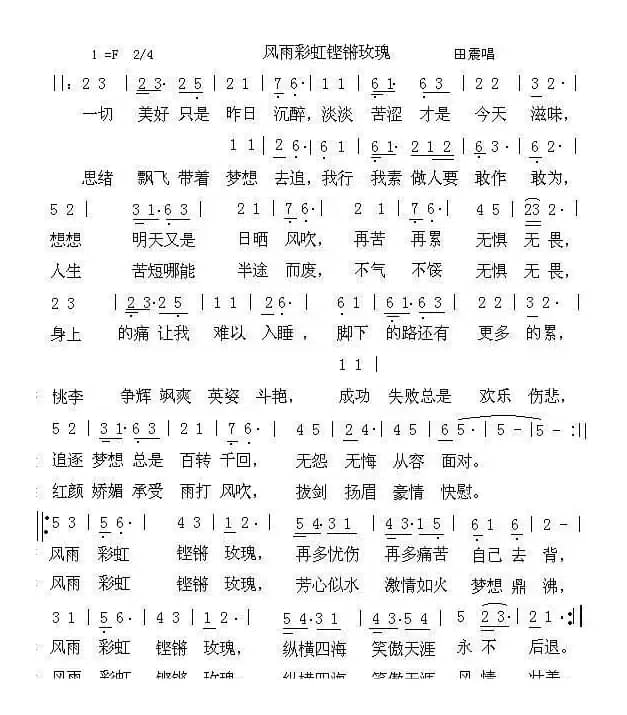 1=F 2/4 风雨彩虹铿锵玫瑰 田震唱
||: 2 3 | 2 3· 2 5 | 2 1 | 7 6· | 1 1 | 6 1· 6 3 | 2 2 | 3 2· |
一切 美好 只是 昨日 沉醉,淡淡 苦涩 才是 今天 滋味,
1 1 | 2 6· | 6 1 | 6 1· 2 1 2 | 6 3· | 2 6· |
思绪 飘飞 带着 梦想 去追,我行 我素 做人要 敢作 敢为,
5 2 | 3 1·6 3 | 2 1 | 7 6· | 2 1 | 7 6· | 4 5 | 23 2· |
想想 明天又是 日晒 风吹, 再苦 再累 无惧 无畏,
人生 苦短哪能 半途 而废, 不气 不馁 无惧 无畏,
2 3 | 2 3·2 5 | 1 1 | 2 6· | 6 1 | 6 1·6 3 | 2 2 | 3 2· |
身上 的痛 让我 难以 入睡, 脚下 的路还有 更多 的累,
1 1 |
桃李 争辉 飒爽 英姿 斗艳, 成功 失败总是 欢乐 伤悲,
5 2 | 3 1·6 3 | 2 1 | 7 6· | 4 5 | 2 4· | 4 5 | 6 5· | 5 - | 5 - :||
追逐 梦想 总是 百转 千回, 无怨 无悔 从容 面对。
红颜 娇媚 承受 雨打 风吹, 拔剑 扬眉 豪情 快慰。
||: 5 3 | 5 6· | 4 3 | 1 2· | 5 4·3 1 | 4 3·1 5 | 6 1 6 | 2 - |
风雨 彩虹 铿锵 玫瑰, 再多忧伤 再多痛苦 自己 去 背,
风雨 彩虹 铿锵 玫瑰, 芳心似水 激情如火 梦想 鼎 沸,
3 1 | 5 6· | 4 3 | 1 2· | 5 4·3 1 | 4 3·5 4 | 5 2 3· | 2 1· :||
风雨 彩虹 铿锵 玫瑰, 纵横四海 笑傲天涯 永 不 后退。
风雨 彩虹 铿锵 玫瑰, 纵横四海 笑傲天涯 风 情 壮美